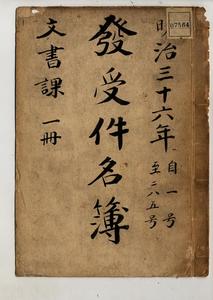 07564
明治三十六年 自一号
至二八五号
發受件名簿
文書課 一冊